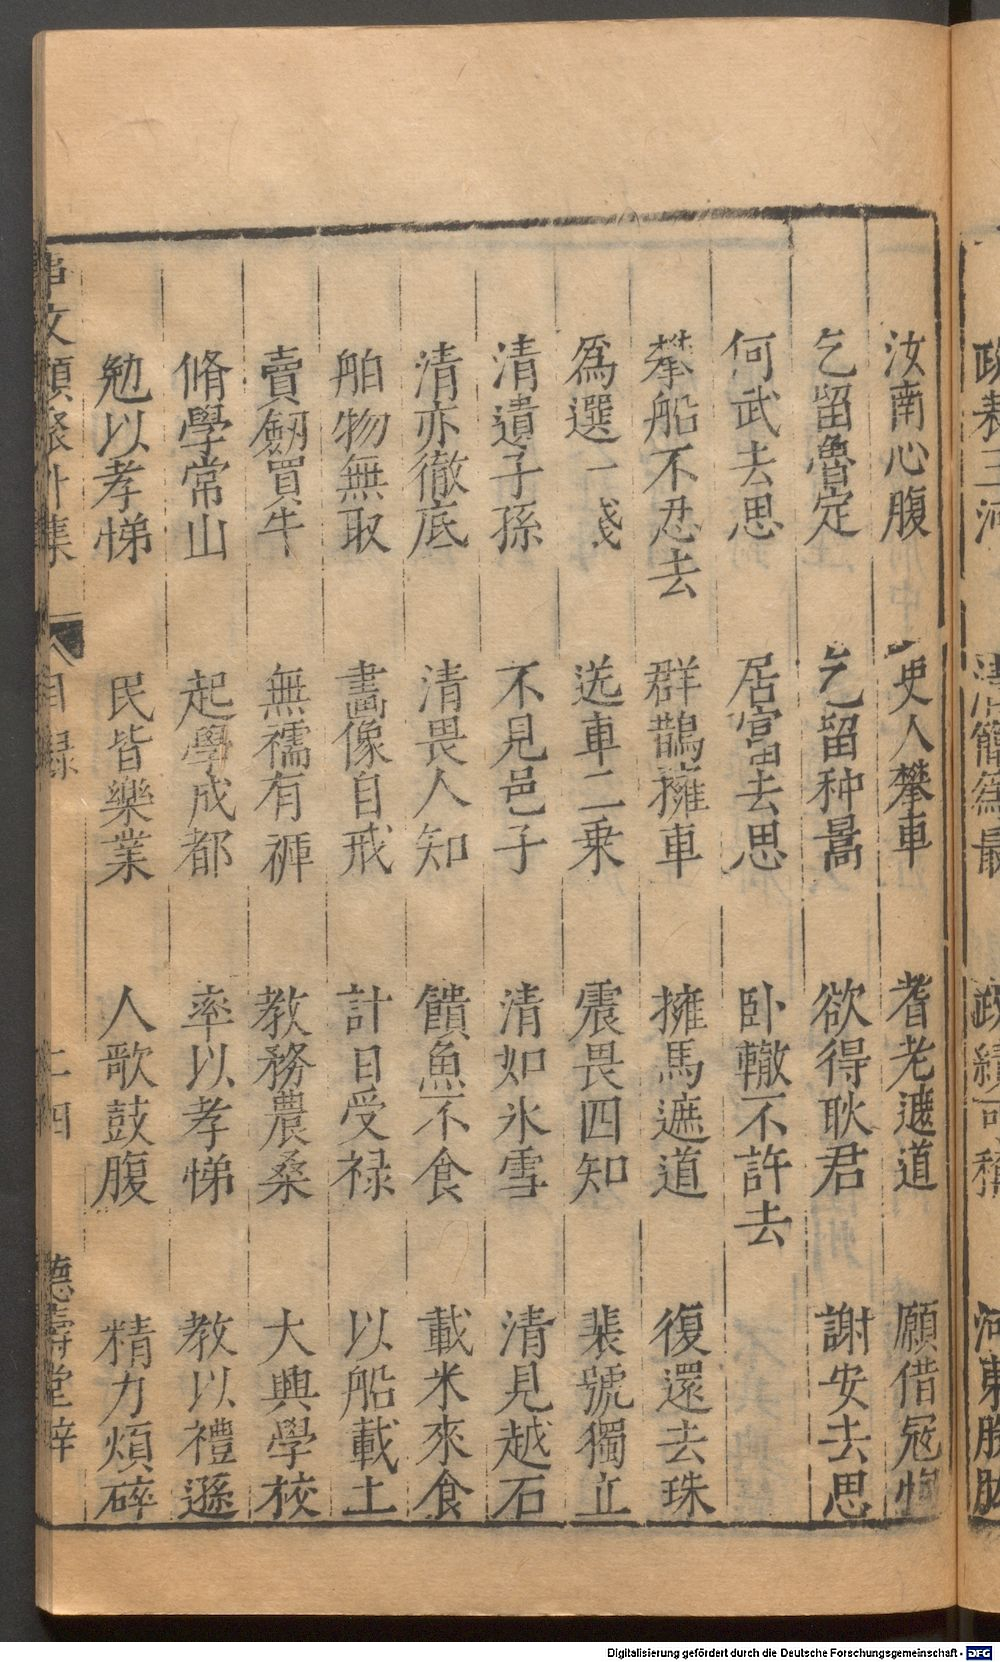 汝南心腹　吏人攀車　耆老遮道　願借冦恂
乞留魯定　乞留种暠　欲得耿君　謝安去思
何武去思　居官去思　卧轍不許去
攀船不忍去　群鵲擁車　擁馬遮道　復還去珠
為選一錢　送車二乗　震畏四知　裴號獨立
清遺子孫　不見邑子　清如氷雪　清見越石
清亦徹底　清畏人知　饋魚不食　載米來食
舶物無取　畵像自戒　計日受禄　以船載土
賣劔買牛　無襦有褲　教務農桑　大興學校
脩學常山　起學成都　率以孝悌　教以禮遜
勉以孝悌　民皆樂業　人歌鼓腹　精力煩碎
事文類聚外集　目録　二四　德壽堂梓
Digitalisierung gefördert durch die Deutsche Forschungsgemeinschaft - DFG